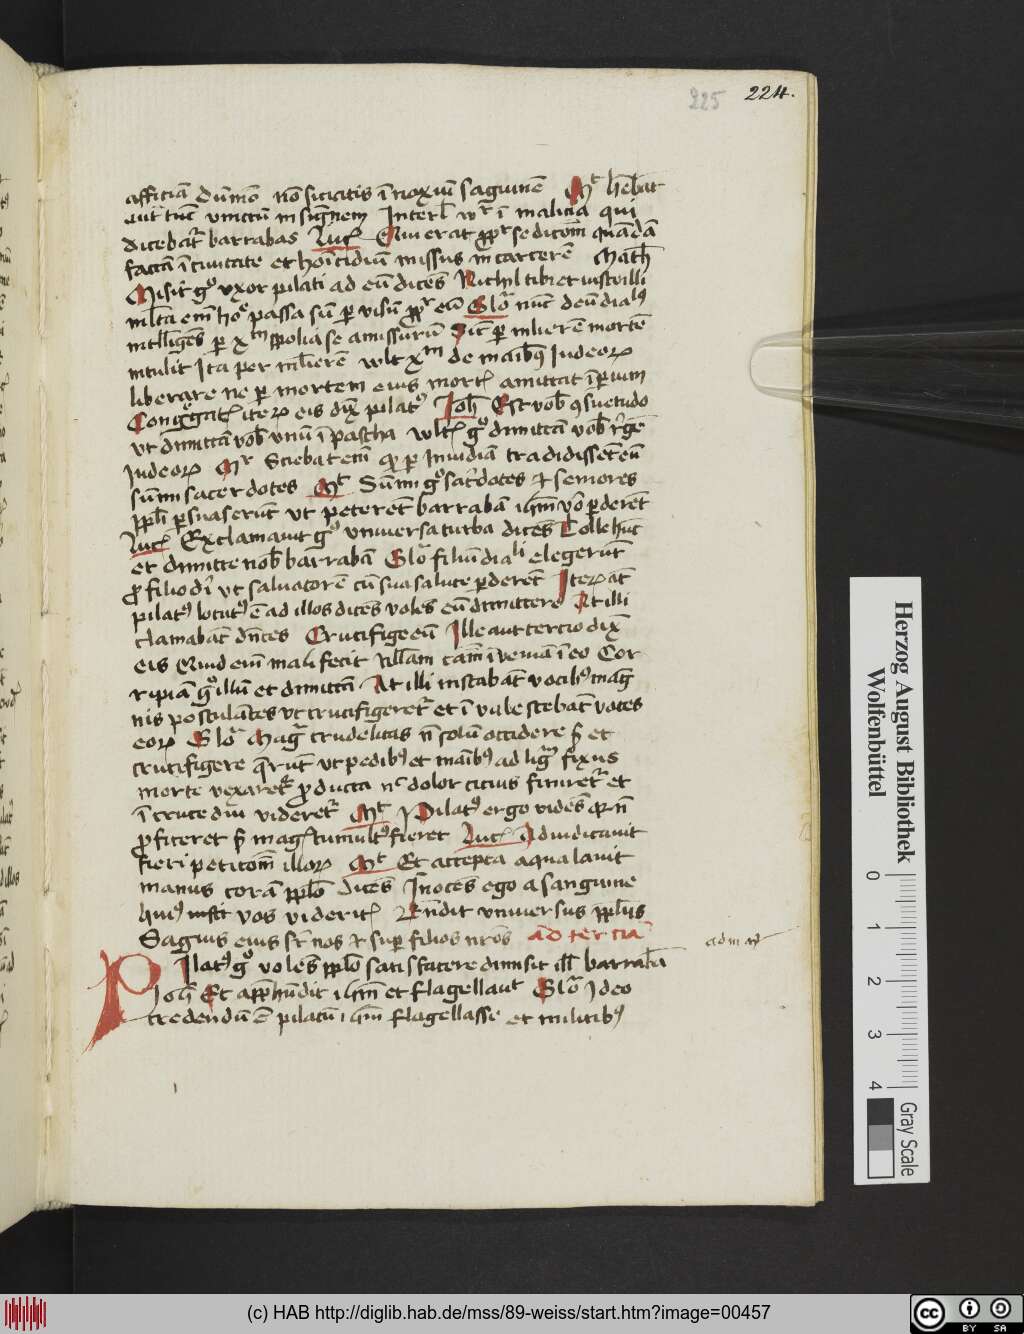 225 224.
afficiā dūmō nō siciatis īnoxiū saguinē Mt hēbāt
aut tūc vinctū insignem Interl vr ī malicia qui
dicebatr barrabas Luc Qui erat ppr sedicōm quādā
factā ī civitate et hoīcidiū missus in carcerē Math
Misit go vxor pilati ad eū dicēs Nichil tibi et iusto illi
mlta em hoc passa sū per visū ppr eū Glo nūc deū dialus
intlligēs per xm spolia se amissurū Sict per mlierē mortē
intulit Ita per mlierē vlt xm de maibus Iudeorum
liberare ne per mortem eius mortis amittat īperium
Congregatis iterum eis dixit pilatus Ioh Est vob gsuetudo
vt dimittā vob vnū ī pascha vltis go dimittā vob rgē
Iudeorum Mr Sciebat em quod per Inuidiā tradidissēt eū
sūmi sacerdotes Mt Sūmi go sacrdotes et seniores
ppli persuaserūt vt peterēt barrabā ihm vo perderēt
Luc Exclamauit go vniuersa turba dicēs Tolle hūc
et dimitte nob barrabā Glo filiū diali elegerūt
pro filio dī vt saluatorē cū sua salute perderēt Iterum āt
pilatus locutus ē ad illos dicēs volēs eū dimittere At illi
clamabāt dcētes Crucifige eū Ille aut tercio dix
eis Quid em mali fecit Nllam cām īvenia ī eo Cor
ripiā go illū et dimittā At illi instabāt vocibus mag
nis postulātes vt crucifigeretr et īvalescebāt voces
eorum Glo Magra crudelitas nō solū occidere s et
crucifigere qrūt vt pedibus et maībus ad ligra fixus
morte vexaretr producta nc dolor cicius finiretr et
ī cruce diu videretr Mt Pilatus ergo vidēs quod n
proficeret s mags tumultus fieret Luc Adiudicauit
fieri peticōm illorum Mt Et accepta aqua lauit
manus corā pplo dicēs Inocēs ego a sanguine
huius iusti vos videritis Rndit vniuersus pplus
Saguis eius sr nos et super filios nros ad terciā
ad mat
Pilatus go volēs pplo satisfacere dimisit ill barrabā
Ioh Et apphndit ihm et flagellaut Glo Ideo
credendū ē pilatū ihm flagellasse et militibus
Herzog August Bibliothek
Wolfenbüttel
0 1 2 3 4
Gray Scale
(c) HAB http://diglib.hab.de/mss/89-weiss/start.htm?image=00457
cc BY SA